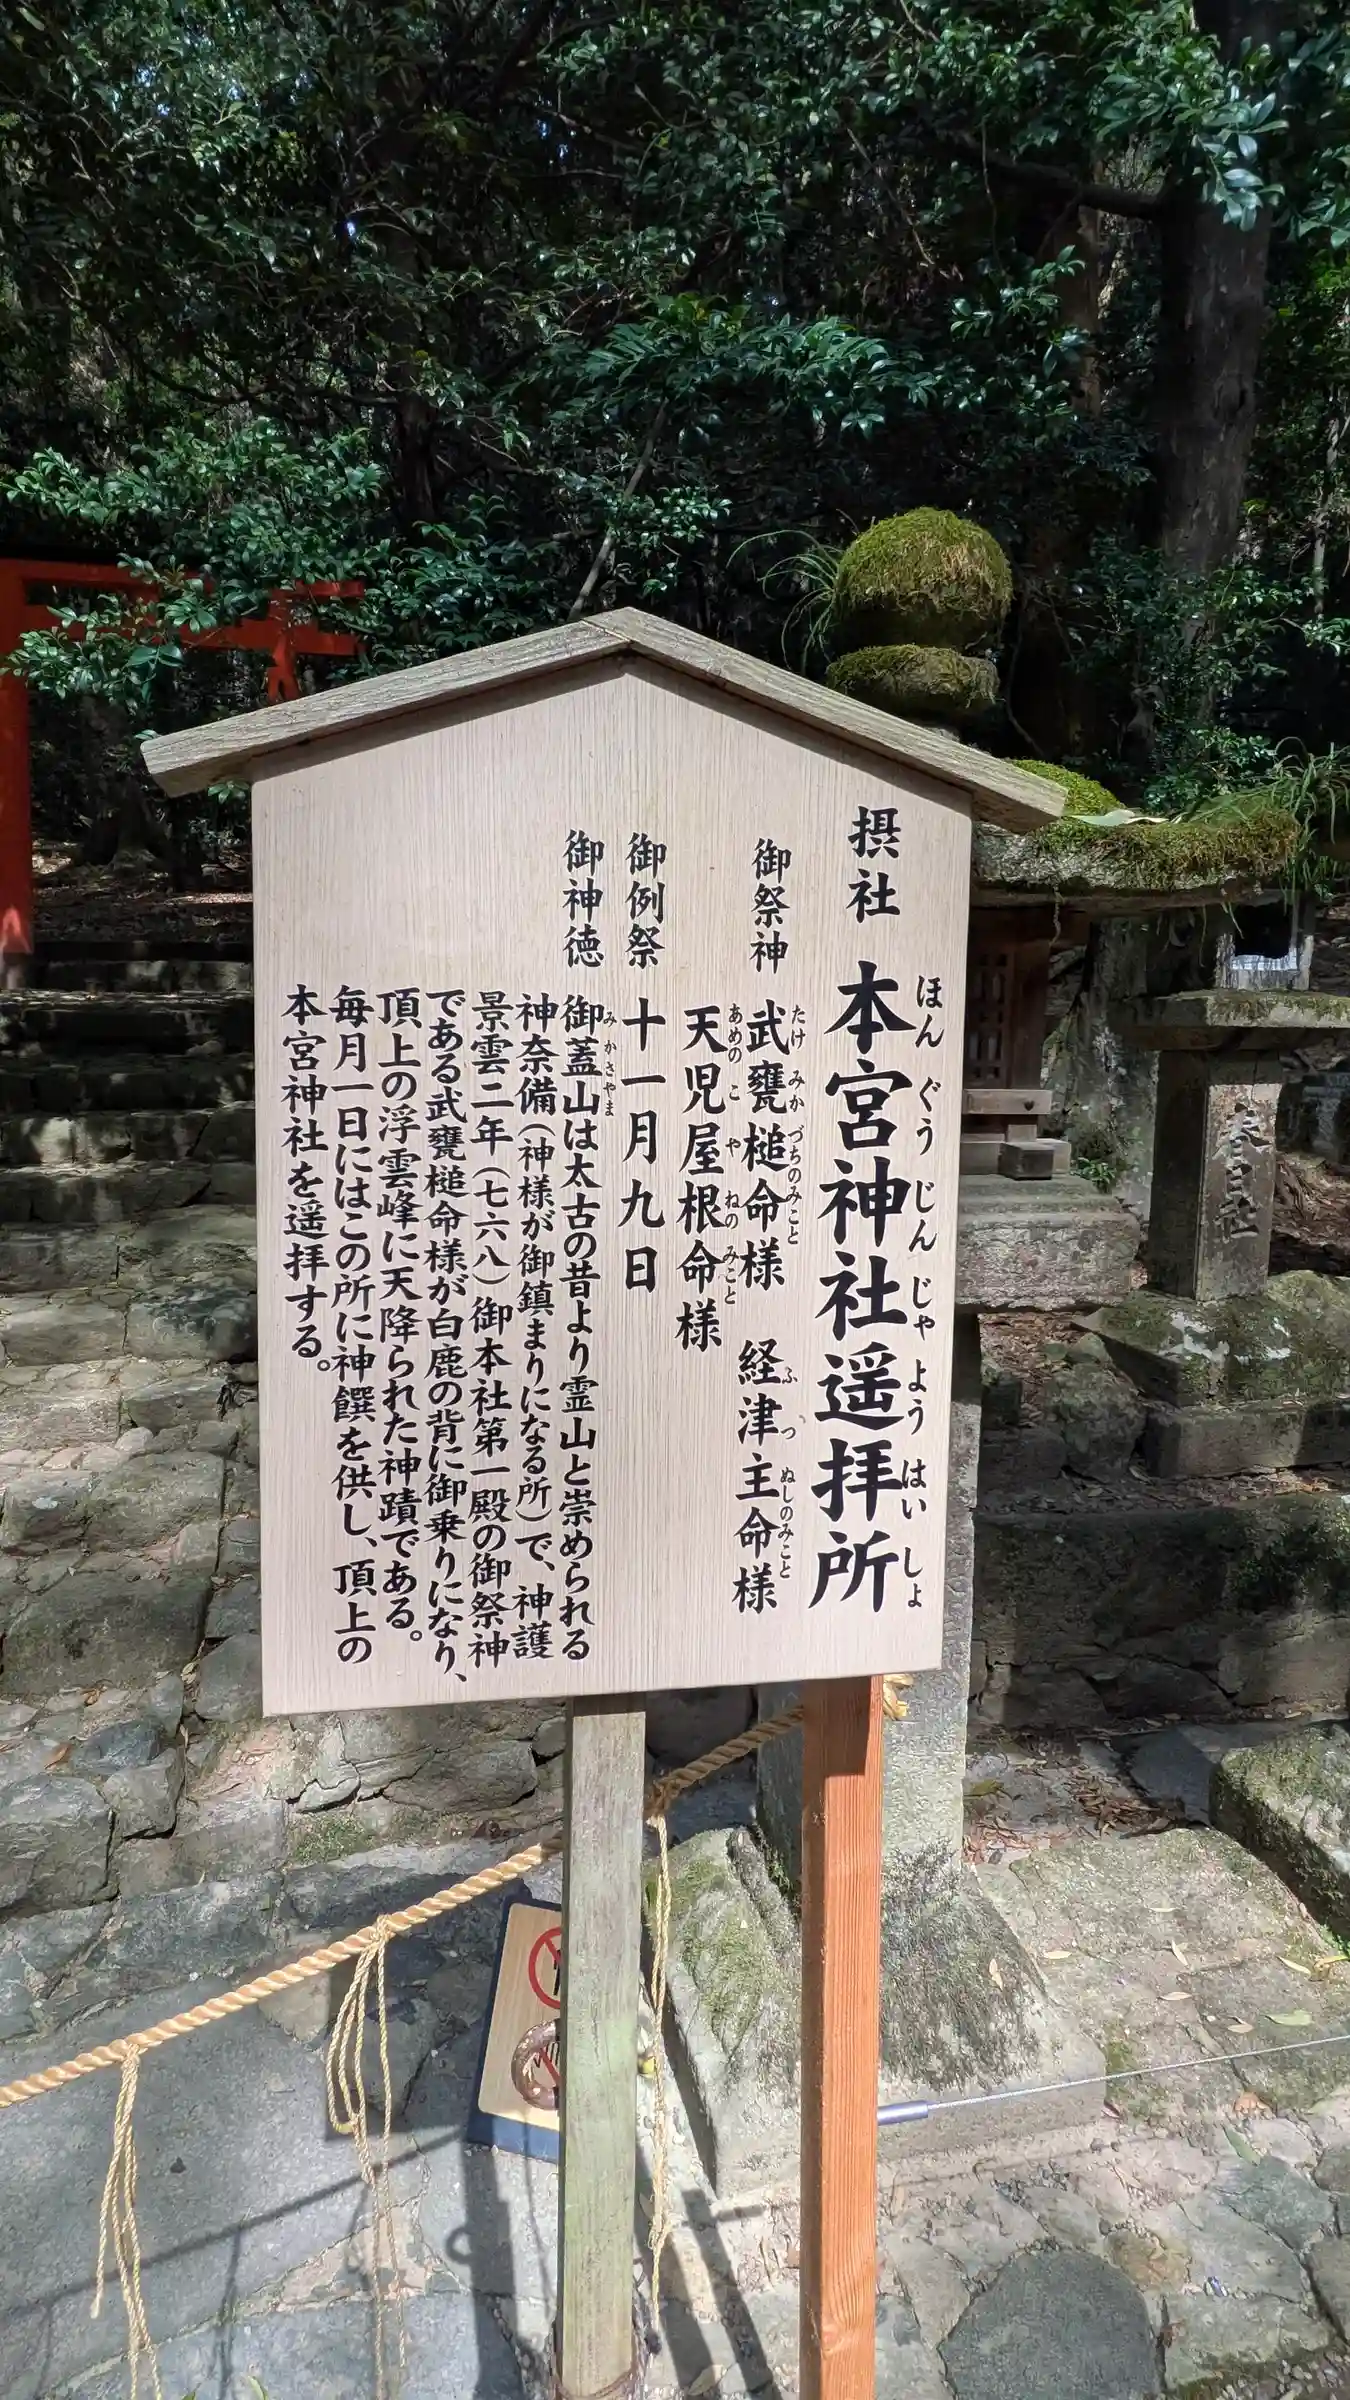 摂社 本宮神社遥拝所
ほん ぐう じん じゃ よう はい しょ
御祭神 武甕槌命様 経津主命様
たけ みか づちのみこと ふ つ ぬしのみこと
天児屋根命様
あめの こ や ねの みこと
御例祭 十一月九日
御神徳 御蓋山は太古の昔より霊山と崇められる
み かさ やま
神奈備(神様が御鎮まりになる所)で、神護
景雲二年(七六八)御本社第一殿の御祭神
である武甕槌命様が白鹿の背に御乗りになり、
頂上の浮雲峰に天降られた神蹟である。
毎月一日にはこの所に神饌を供し、頂上の
本宮神社を遥拝する。
春日社